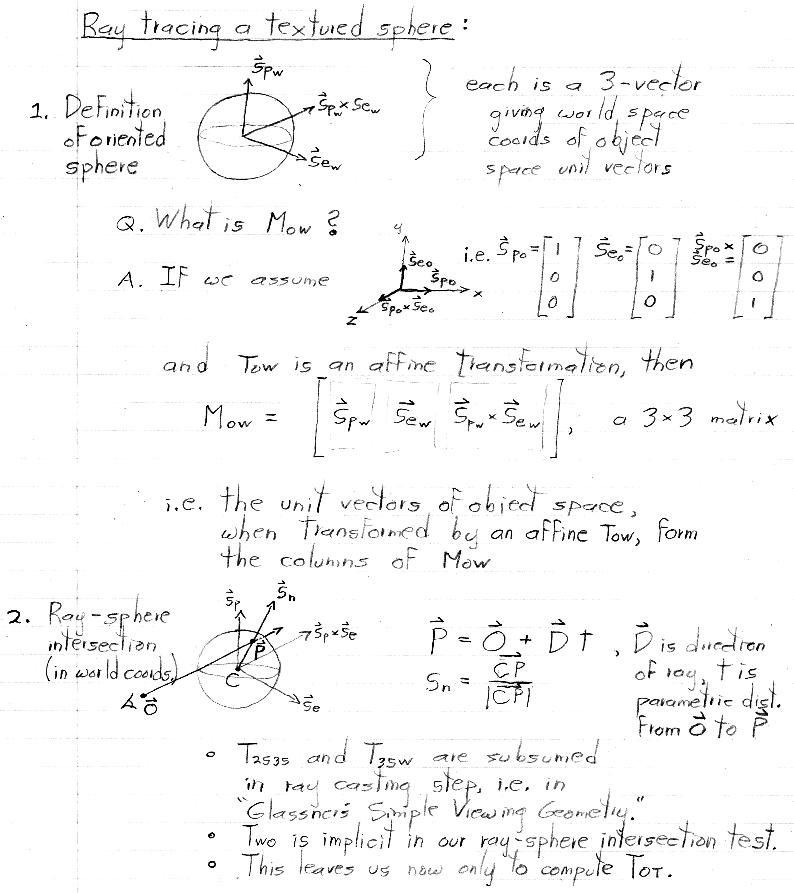 Ray tracing a textured sphere:
S⃗pw
1. Definition of oriented sphere
S⃗pw × S⃗ew
S⃗ew
each is a 3-vector
giving world space
coords of object
space unit vectors
Q. What is Mow?
A. If we assume
y
S⃗eo
S⃗po
x
S⃗po × S⃗eo
z
i.e. S⃗po = [1 0 0] S⃗eo = [0 1 0] S⃗po × S⃗eo = [0 0 1]
and Tow is an affine transformation, then
Mow = [ S⃗pw S⃗ew S⃗pw × S⃗ew ], a 3×3 matrix
i.e. the unit vectors of object space,
when transformed by an affine Tow, form
the columns of Mow
2. Ray-sphere
intersection
(in world coords)
S⃗p
S⃗n
S⃗p × S⃗e
P⃗
C
S⃗e
O⃗
P⃗ = O⃗ + D⃗ t , D⃗ is direction
Sn = CP⃗ / |CP⃗|
of ray, t is
parametric dist.
from O⃗ to P⃗
• T2S3S and T3SW are subsumed
in ray casting step, i.e. in
"Glassner's Simple Viewing Geometry."
• Two is implicit in our ray-sphere intersection test.
• This leaves us now only to compute TOT.